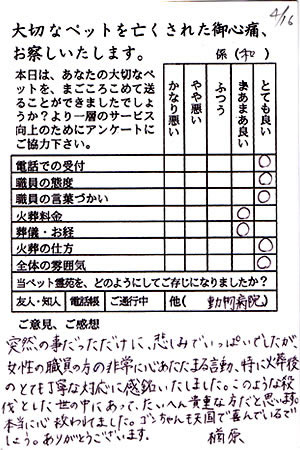 4/16
大切なペットを亡くされた御心痛、
お察しいたします。 係(和)
本日は、あなたの大切なペ
ットを、まごころこめて送
ることができましたでしょ
うか?より一層のサービス
向上のためにアンケートに
ご協力下さい。
かなり悪い
やや悪い
ふつう
まあまあ良い
とても良い
電話での受付 ○
職員の態度 ○
職員の言葉づかい ○
火葬料金 ○
葬儀・お経 ○
火葬の仕方 ○
全体の雰囲気 ○
当ペット霊苑を、どのようにしてご存じになりましたか?
友人・知人 電話帳 ご通行中 他(動物病院)
ご意見、ご感想
突然の事だっただけに、悲しみでいっぱいでしたが、
女性の職員の方の非常に心あたたまる言動、特に火葬後
のとても丁寧な対応に感銘いたしました。このような殺
伐とした世の中にあって、たいへん貴重な方だと思います。
本当に心救われてました。ゴンちゃんも天国で喜んでいるで
しょう。ありがとうございます。 楢原